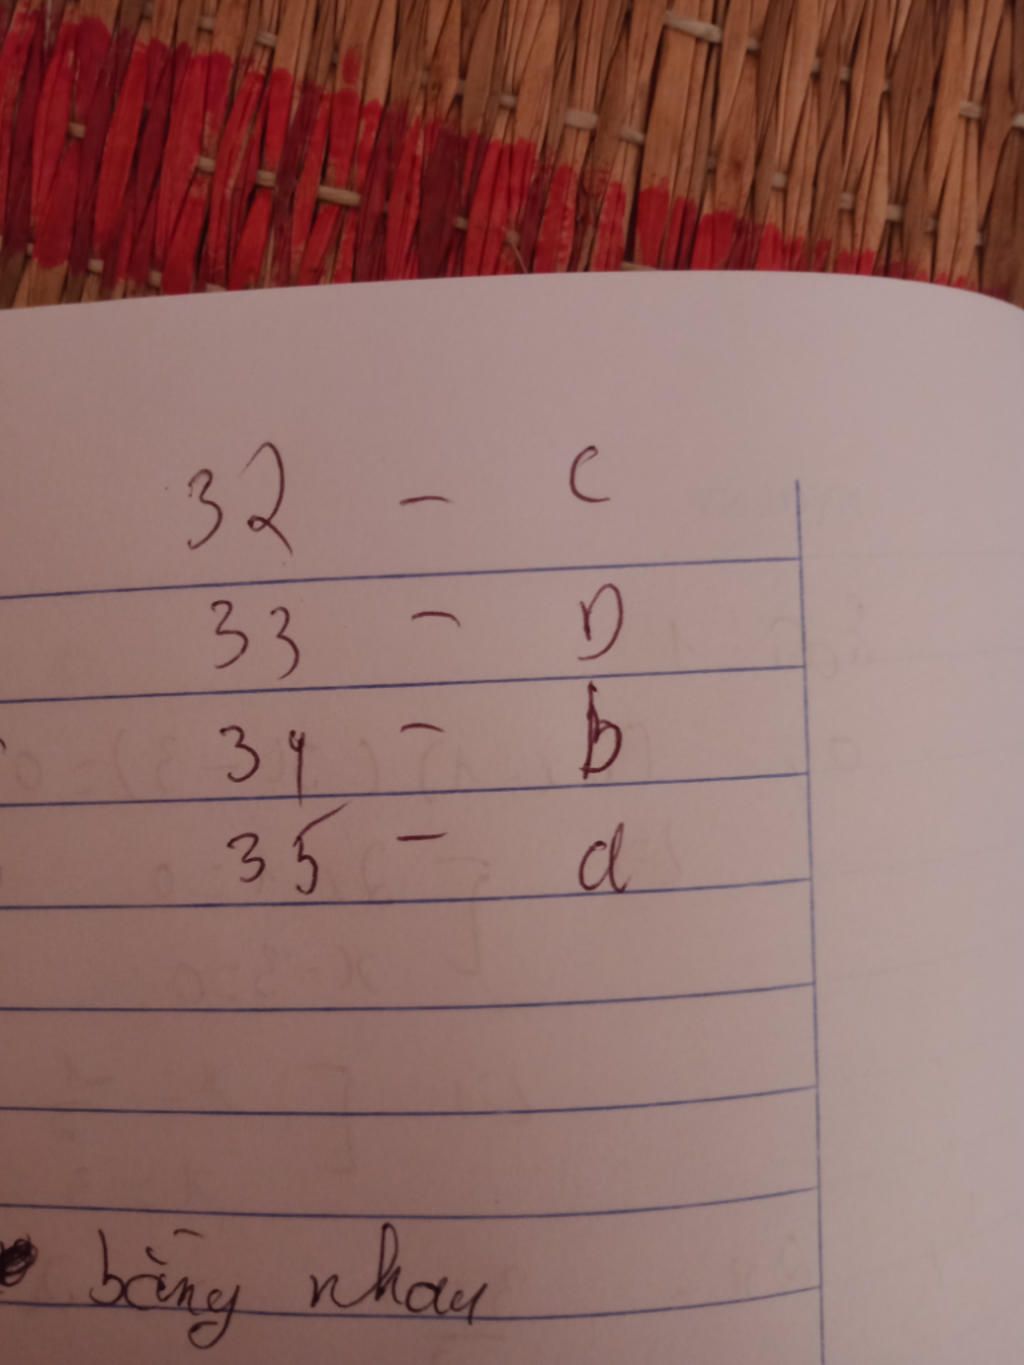 32 - C
33 - D
34 - b
35 - d
bằng nhau